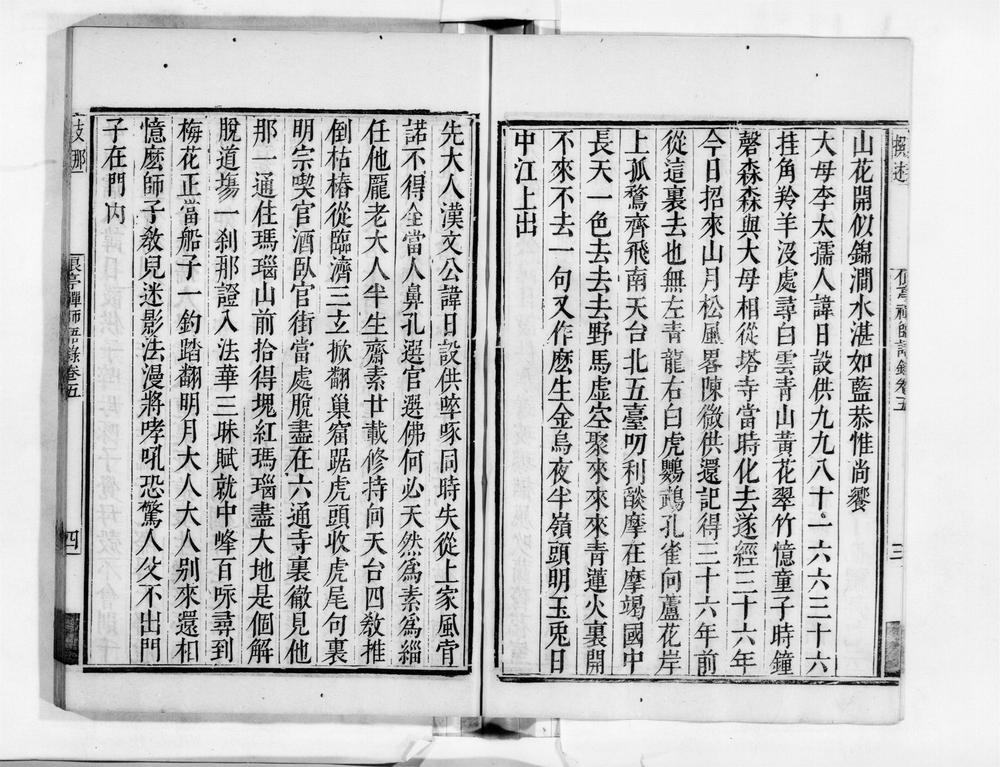 山花開似錦澗水湛如藍恭惟尚饗
大母李太孺人諱日設供九九八十一六六三十六
挂角羚羊沒處尋白雲青山黃花翠竹憶童子時鐘
磬森森與大母相從塔寺當時化去遂經三十六年
今日招來山月松風畧陳微供還記得三十六年前
從這裏去也無左青龍右白虎鸚鵡孔雀向蘆花岸
上孤鶩齊飛南天台北五臺叨利燄摩在摩竭國中
長天一色去去去野馬虛空聚來來來青蓮火裏開
不來不去一句又作麼生金烏夜半嶺頭明玉兎日
中江上出
三
先大人漢文公諱日設供啐啄同時失從上家風宵
諾不得全當人鼻孔選官選佛何必天然爲素爲緇
任他龐老大人半生齋素廿載修持向天台四敎推
倒枯樁從臨濟三玄掀翻巢窟踞虎頭收虎尾句裏
明宗喫官酒臥官街當處脫盡在六通寺裏徹見他
那一通住瑪瑙山前拾得塊紅瑪瑙盡大地是個解
脫道塲一刹那證入法華三昧賦就中峰百咏尋到
梅花正當船子一釣踏翻明月大人大人别來還相
憶麼師子敎兒迷影法漫將哮吼恐驚人父不出門
子在門內
亭禪師語錄卷五
四